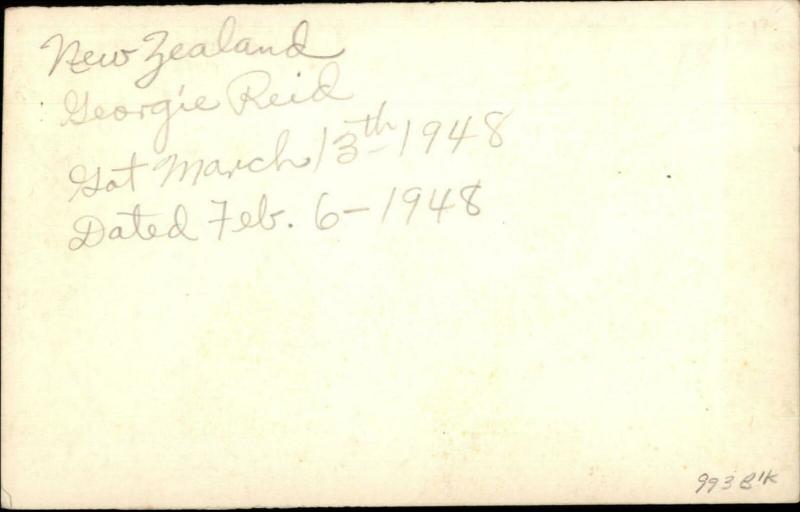 New Zealand
Georgie Reid
Got March 13th-1948
Dated Feb. 6-1948
993 B'K